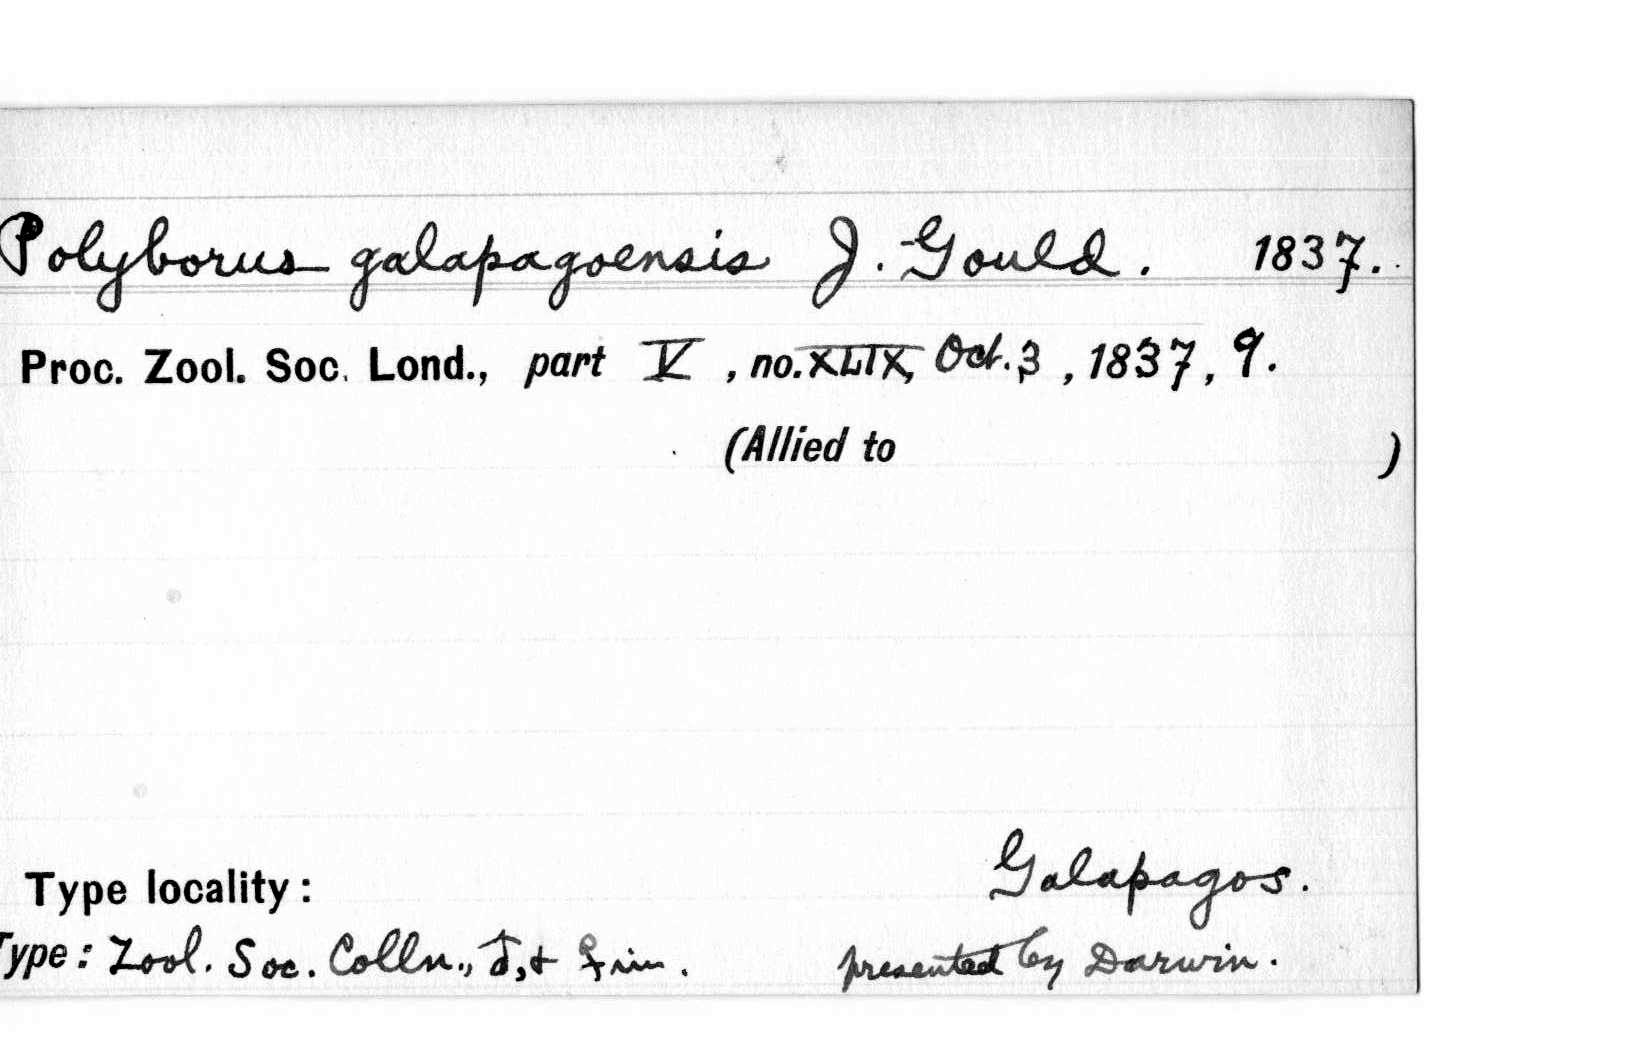 Polyborus galapagoensis J. Gould. 1837.
Proc. Zool. Soc. Lond., part V, no. XLIX, Oct. 3, 1837, 9.
(Allied to )
Type locality: Galapagos.
Type: Zool. Soc. Colln., ♂, + ♀ im. presented by Darwin.